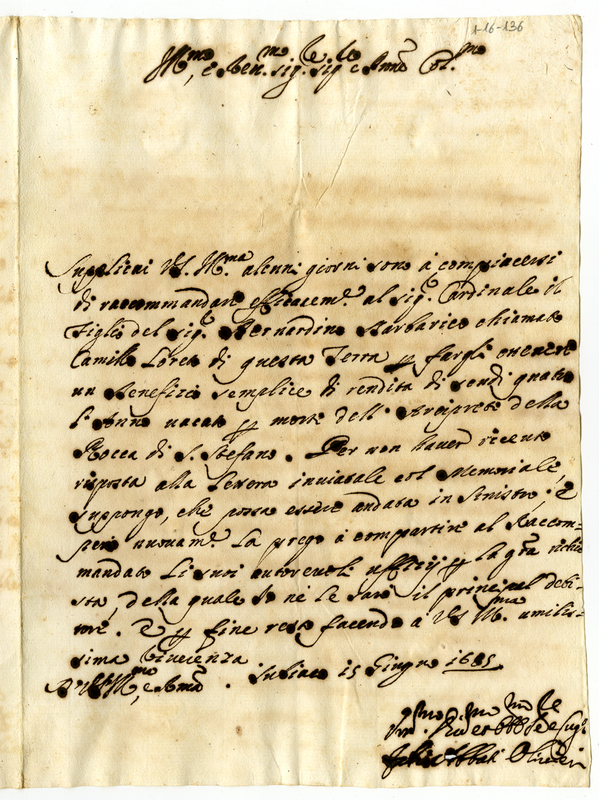 1-16-136
Ill.mo, e Rev.mo Sig.re Sig.re e P.rone Col.mo
Supplicai V.S. Ill.ma alcuni giorni sono à compiacersi
di raccommandare efficacem.e al Sig.r Cardinale il
Figlio del Sig.r Bernardino Barbarico chiamato
Camillo Loreto di questa Terra p fargli ottenere
un Benefizio semplice di rendita di scudi quattro
l'Anno vacato p morte dell' Arciprete della
Rocca di S. Stefano. Per non haver ricevuto
risposta alla lettera inviatale col Memoriale,
suppongo, che possa essere andata in sinistro; e
però nuovam.e La prego à compartire al Raccom-
mandato li suoi autorevoli uffizij p la gra richie-
sta, della quale Io ne le sarò il principal debi-
tore. E p fine resto facendo a V.S. Ill.ma umilis-
sima riverenza
Di V.S. Ill.ma, e R.ma. Subiaco 15 Giugno 1685